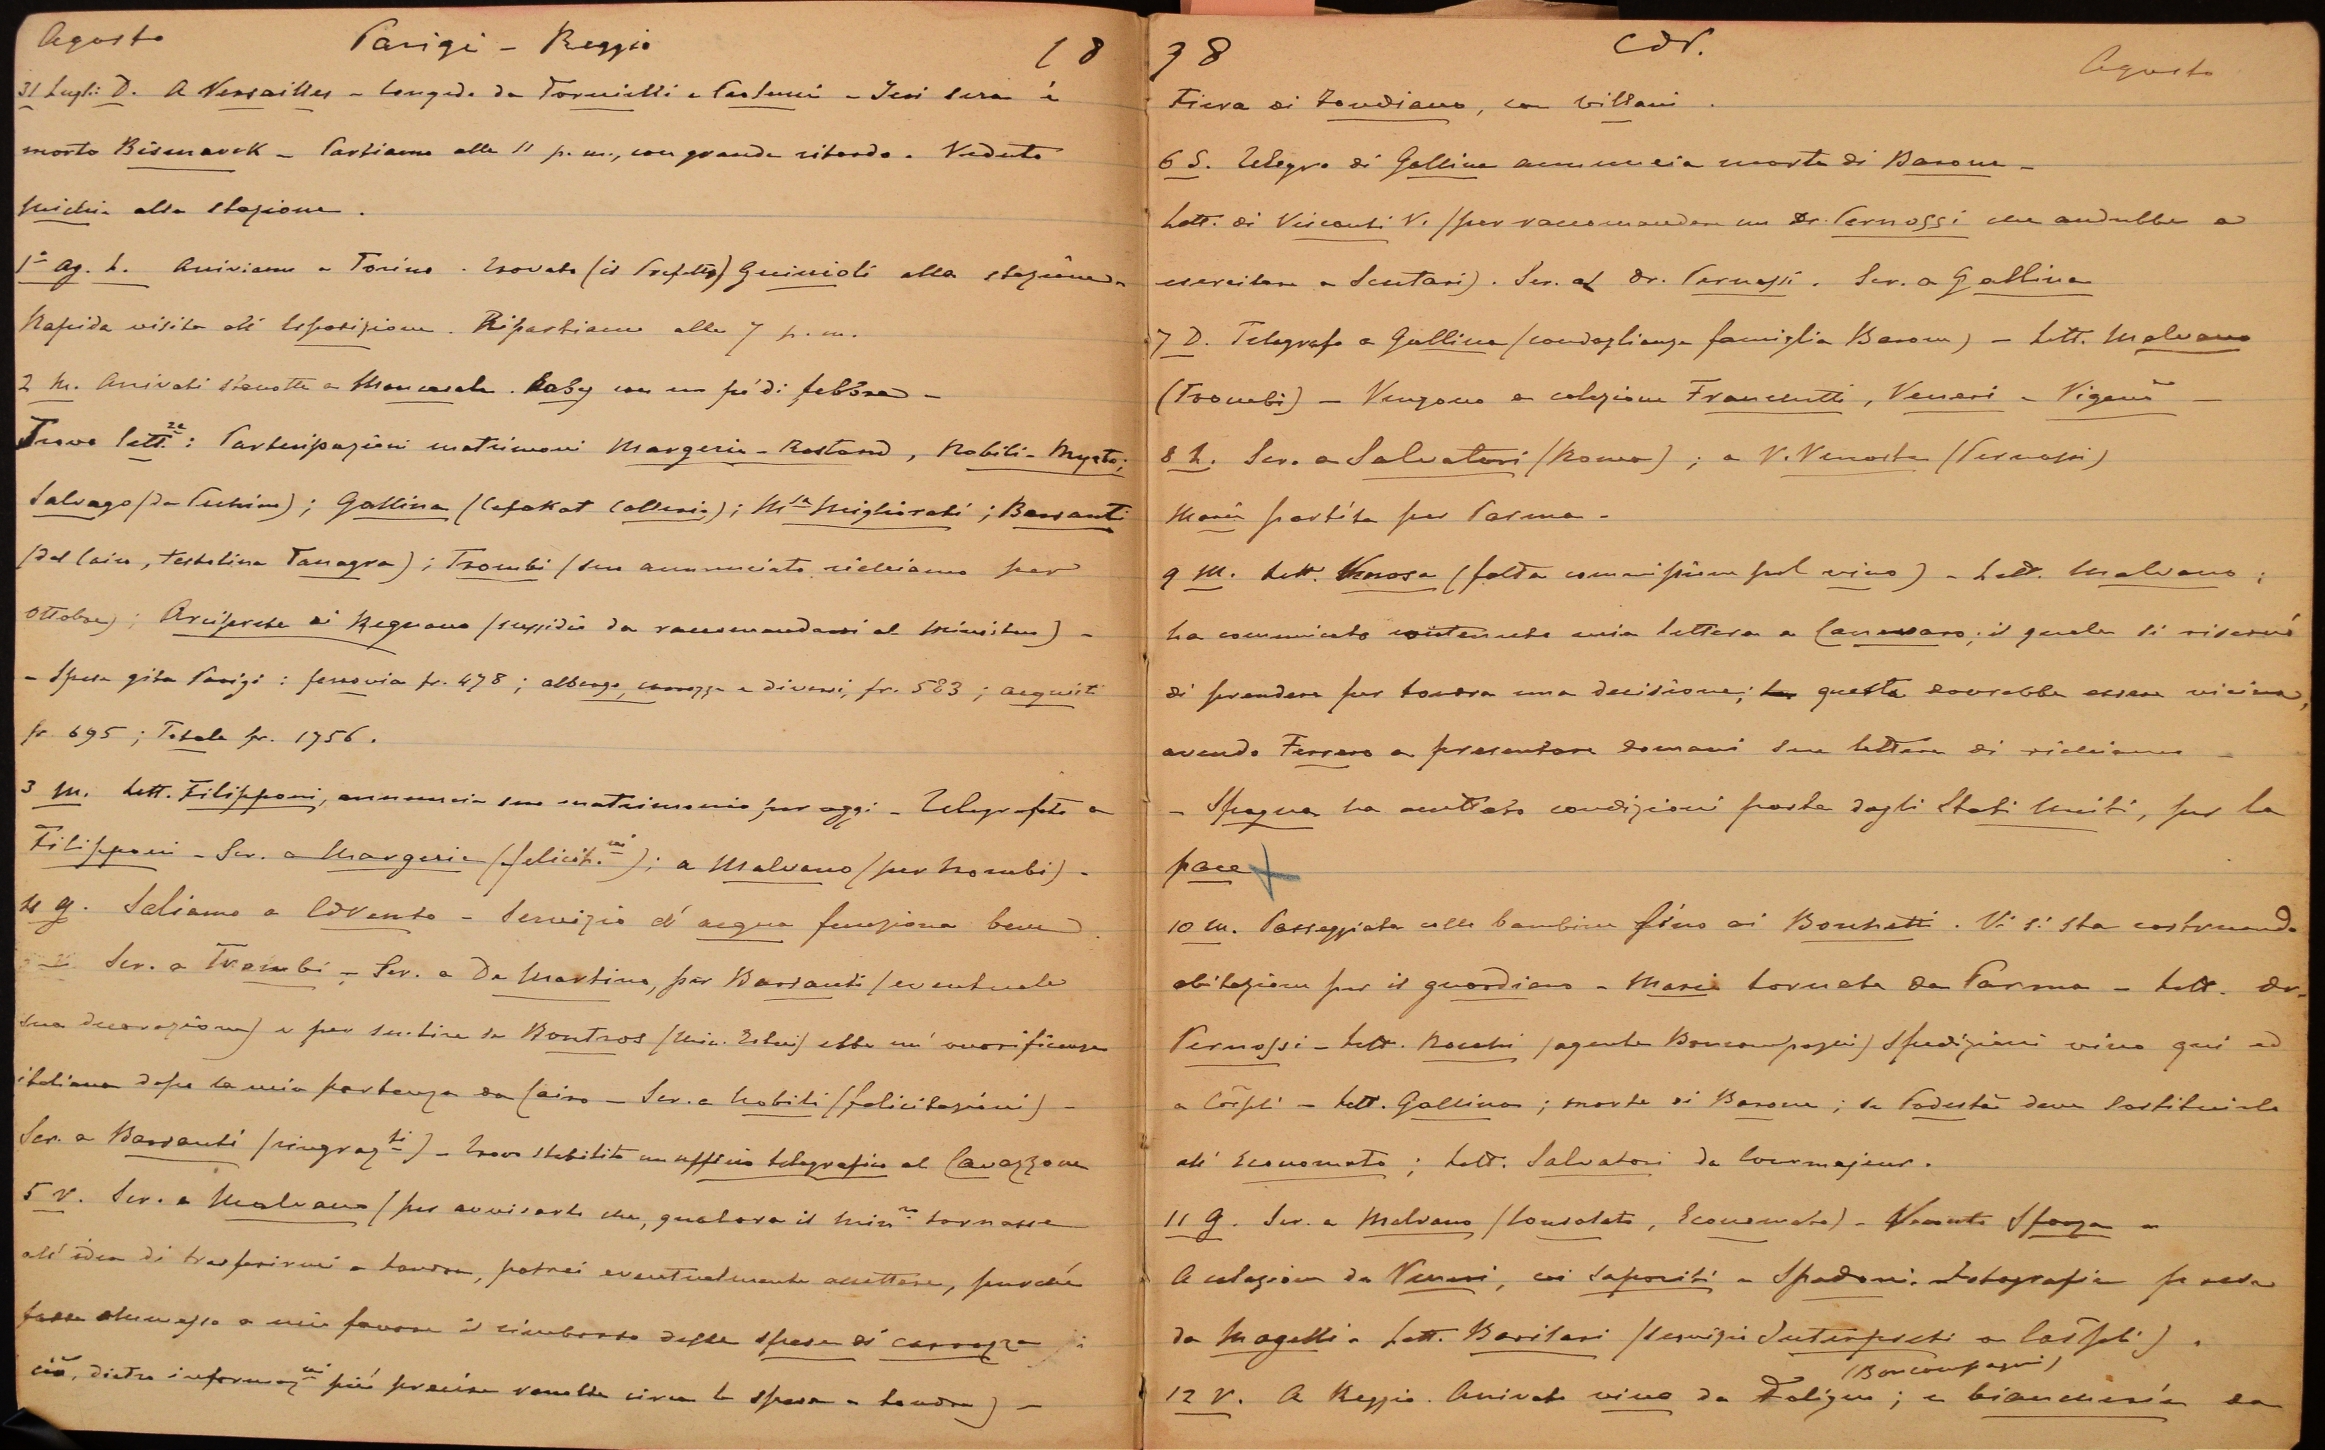 Agosto Parigi - Reggio 18
31 Lugli: D. A Versailles - Congedo da Tornielli e Paolucci - Ieri sera è
morto Bismarck - Partiamo alle 11 p. m., con grande ritardo. Veduto
alla stazione.
1° Ag. L. Arriviamo a Torino. Trovato (il Prefetto) Guiccioli alla stazione -
Rapida visita all' Esposizione. Ripartiamo alle 7 p. m.
2 M. Arrivati stanotte a Mancasale. Baby con un pò di febbre -
Trovo lett.re: Partecipazioni matrimoni Margerie - Rostand, Nobili -
Salvago (da Pechino); Gallina (Calleri); M.sa Migliorati; Barsanti
(dal Cairo, testolina Tanagra); Trombi (suo annunciato richiamo per
ottobre); Arciprete di Regnano (sussidio da raccomandarsi al Ministero) -
- Spesa gita Parigi: ferrovia fr. 478; albergo, carrozza e diversi, fr. 583; acquisti
fr 695; Totale fr. 1756.
3 M. Lett. Filipponi, annuncia suo matrimonio per oggi - Telegrafato a
Filipponi - Scr. a Margerie (felicit.ni); a Malvano (per Trombi) -
4 G. Saliamo a CdVento - Servizio d' acqua funziona bene
Scr. a Trombi - Scr. a De Martino, per Barsanti (eventuale
sua decorazione) e per sentire se Boutros (Min. Esteri) ebbe un' onorificenza
italiana dopo la mia partenza da Cairo - Scr. a Nobili (felicitazioni) -
Scr. a Barsanti (ringraz.ti) - Trovo stabilito un ufficio telegrafico al Cavazzone
5 V. Scr. a Malvano (per avvisarlo che, qualora il Min.ro tornasse
all' idea di trasferirmi a Londra, potrei eventualmente accettare, purché
fosse ammesso a mio favore il rimborso delle spese di carrozza;
ciò, dietro informaz.ni più precise circa le spese a Londra) -
98 CdV. Agosto
Fiera di Fondiano, con villani.
6 S. Telegr. di Gallina annuncia morte di Barone -
Lett. di Visconti V. (per raccomandare un Dr. Pernossi che andrebbe ad
esercitare a Scutari). Scr. al Dr. Pernossi. Scr. a Gallina
7 D. Telegrafo a Gallina (condoglianze famiglia Barone) - Lett. Malvano
(Trombi) - Vengono a colazione Franchetti, Veneri e Viganò -
8 L. Scr. a Salvatori (Roma); a V. Venosta (Pernossi)
Maria partita per Parma -
9 M. Lett. Venosa (fatta commissione pel vino) - Lett. Malvano;
ha comunicato contenuto mia lettera a Canevaro, il quale si riservò
di prendere per Londra una decisione; questa dovrebbe essere vicina,
avendo Ferrero a presentare domani sue lettere di richiamo -
- Spagna ha accettato condizioni poste dagli Stati Uniti, per la
pace
10 M. Passeggiata colle bambine fino ai Boschetti. Vi si sta costruendo
abitazione per il guardiano - Maria tornata da Parma - Lett. Dr.
Pernossi - Lett. Rocchi (agente Boncompagni) Spedizioni vino qui ed
a C.ospli - Lett. Gallina; morte di Barone; se Podestà deve sostituirlo
all' Economato; Lett. Salvatori da Courmajeur.
11 G. Scr. a Malvano (Consolato, Economato) - Venuto Sforza a
A colazione da Veneri, coi Saporiti e Spadoni. Fotografia presa
da Magelli. Lett. Barilari (servizio Interpreti a Cos.pli).
(Boncompagni)
12 V. A Reggio. Arrivato vino da Foligno; e biancheria da